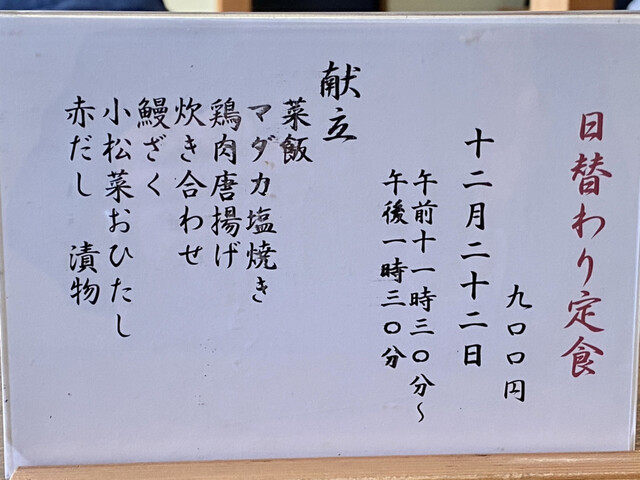 日替わり定食
九〇〇円
十二月二十二日
午前十一時三〇分～
午後一時三〇分
献立
菜飯
マダカ塩焼き
鶏肉唐揚げ
炊き合わせ
鰻ざく
小松菜おひたし
赤だし 漬物